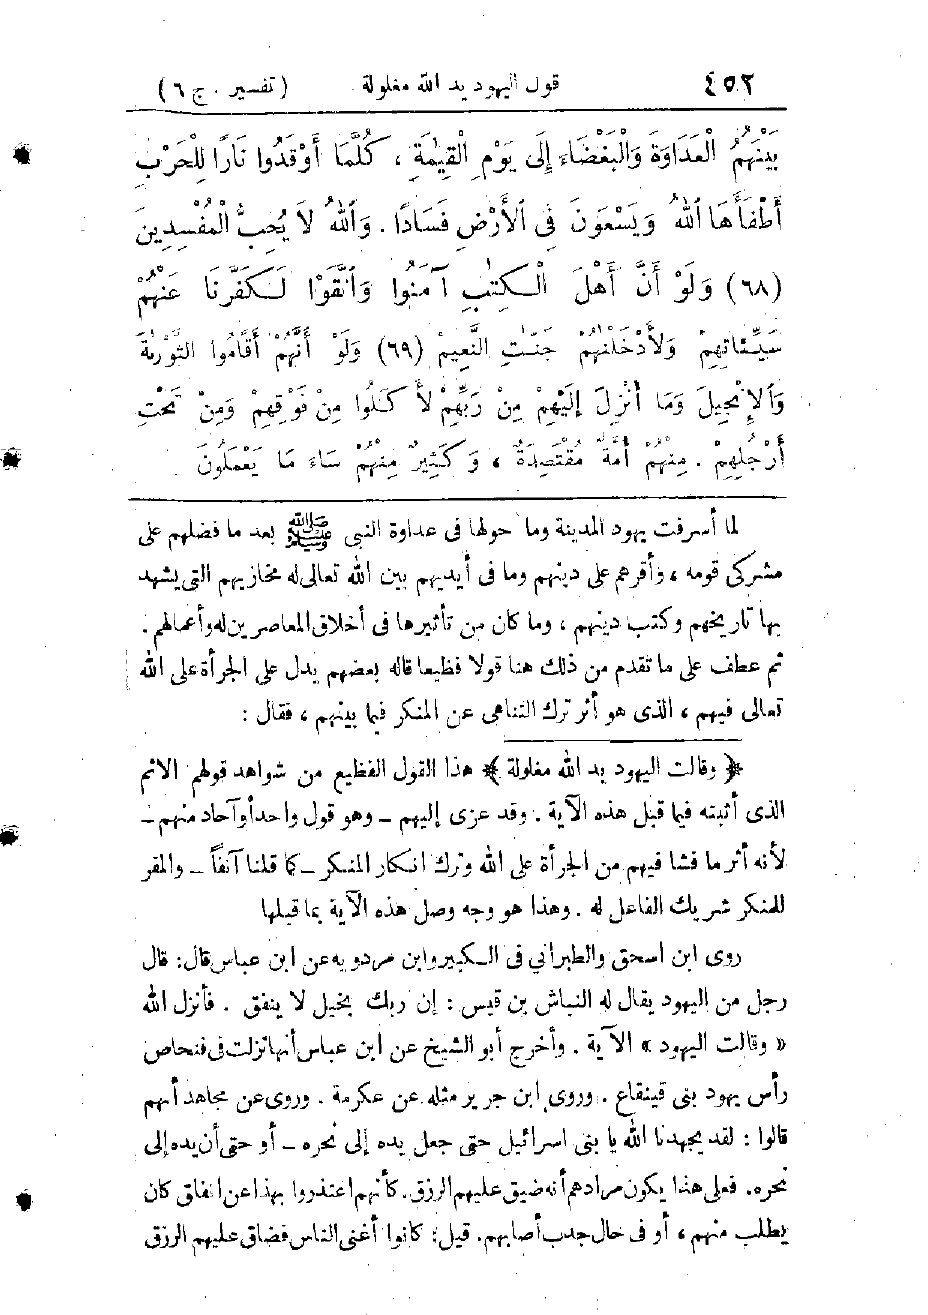 ٤٥٢ قول اليهود يد الله مغلولة (تفسير . ج ٦)
بَيْنَهُمُ الْعَدَاوَةَ وَالْبَغْضَاءَ إِلَى يَوْمِ الْقِيٰمَةِ ، كُلَّمَا أَوْقَدُوا نَارًا لِلْحَرْبِ
أَطْفَأَهَا اللهُ وَيَسْعَوْنَ فِى الأَرْضِ فَسَادًا . وَاللهُ لاَ يُحِبُّ الْمُفْسِدِينَ
(٦٨) وَلَوْ أَنَّ أَهْلَ الْـكِتٰبِ آمَنُوا وَاتَّقَوْا لَـكَفَّرْنَا عَنْهُمْ
سَيِّـئَاتِهِمْ وَلأَدْخَلْنٰهُمْ جَنّٰتِ النَّعِيمْ (٦٩) وَلَوْ أَنَّهُمْ أَقَامُوا التَّوْرٰىةَ
وَالإِنْجِيلَ وَمَا أُنْزِلَ إِلَيْهِمْ مِنْ رَبِّهِمْ لأَكَلُوا مِنْ فَوْقِهِمْ وَمِنْ تَحْتِ
أَرْجُلِهِمْ . مِنْهُمْ أُمَّةٌ مُقْتَصِدَةٌ ، وَكَثِيرٌ مِنْهُمْ سَاءَ مَا يَعْمَلُونَ
لما أسرفت يهود المدينة وما حولها فى عداوة النبى ﷺ بعد ما فضلهم على
مشركى قومه ، وأقرهم على دينهم وما فى أيديهم بين الله تعالى له مخازيهم التى يشهد
بها تاريخهم وكتب دينهم ، وما كان من تأثيرها فى أخلاق المعاصرين له وأعمالهم .
ثم عطف على ما تقدم من ذلك هنا قولا فظيعا قاله بعضهم يدل على الجرأة على الله
تعالى فيهم ، الذى هو أثر ترك التناهى عن المنكر فيما بينهم ، فقال :
﴿ وقالت اليهود يد الله مغلولة ﴾ هذا القول الفظيع من شواهد قولهم الاثم
الذى أثبته فيما قبل هذه الآية . وقد عزى إليهم – وهو قول واحد أو آحاد منهم –
لأنه أثر ما فشا فيهم من الجرأة على الله وترك انكار المنكر – كما قلنا آنفاً – والمقر
للمنكر شريك الفاعل له . وهذا هو وجه وصل هذه الآية بما قبلها
روى ابن اسحق والطبراني فى الـكبير وابن مردويه عن ابن عباس قال : قال
رجل من اليهود يقال له النباش بن قيس : إن ربك بخيل لا ينفق . فأنزل الله
« وقالت اليهود » الآية . وأخرج أبو الشيخ عن ابن عباس أنها نزلت فى فنحاص
رأس يهود بنى قينقاع . وروى ابن جرير مثله عن عكرمة . وروى عن مجاهد أنهم
قالوا : لقد يجهدنا الله يا بنى اسرائيل حتى جعل يده إلى نحره – أو حتى أن يده إلى
نحره . فعلى هذا يكون مرادهم أنه ضيق عليهم الرزق . كأنهم اعتذروا بهذا عن انفاق كان
يطلب منهم ، أو فى حال جدب أصابهم . قيل : كانوا أغنى الناس فضاق عليهم الرزق